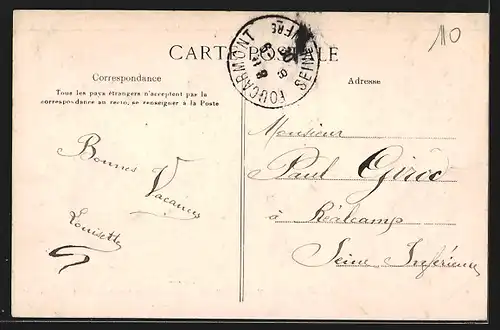 110
CARTE POSTALE
FOUCARMONT
SEINE INFRE
Correspondance
Tous les pays étrangers n'acceptent pas la
correspondance au recto, se renseigner à la Poste
Adresse
Bonnes
Vacances
Louisette
Monsieur
Paul Girod
à Réalcamp
Seine Inférieure